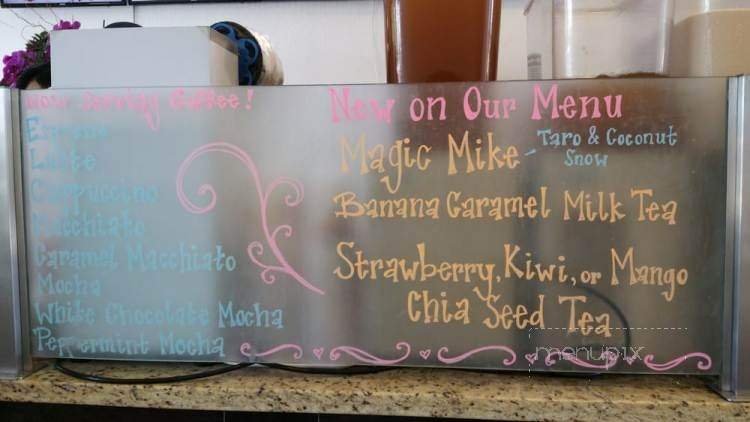 Now Serving Coffee!
Espresso
Latte
Cappuccino
Macchiato
Caramel Macchiato
Mocha
White Chocolate Mocha
Peppermint Mocha
New on Our Menu
Magic Mike - Taro & Coconut
Snow
Banana Caramel Milk Tea
Strawberry, Kiwi, or Mango
Chia Seed Tea
menupix